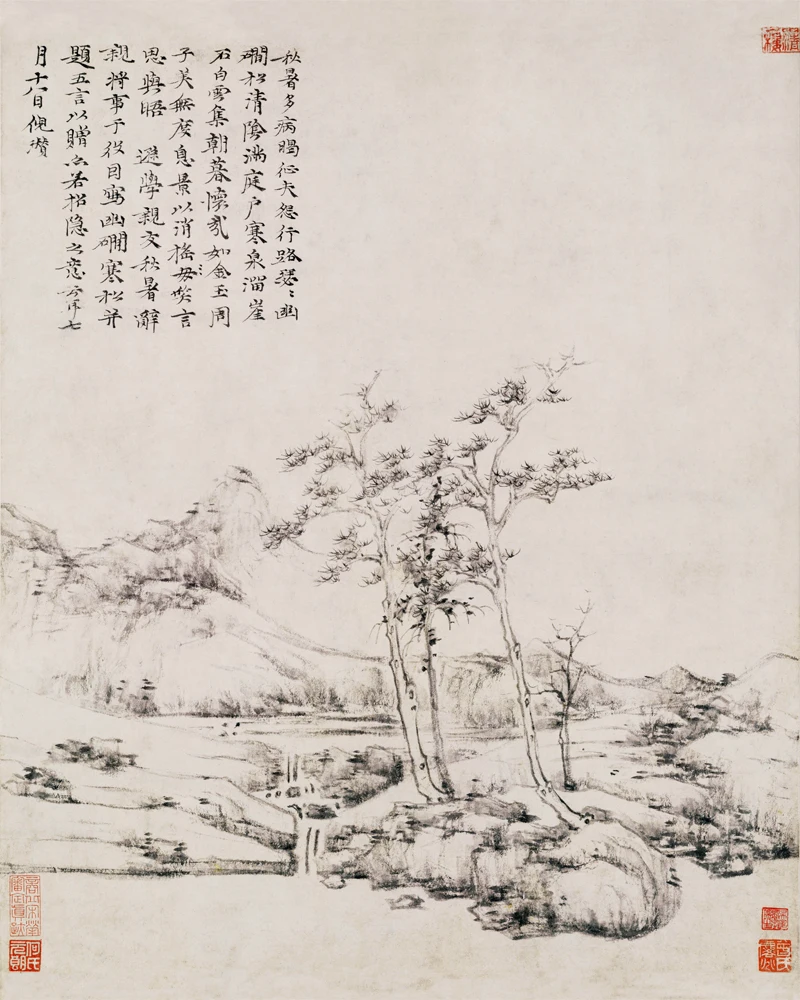 秋暑多病暍征夫怨行路瑟〻幽
磵松清陰滿庭户寒泉溜崖
石白雲集朝暮懷哉如金玉周
子美無度息景以消搖毋笑言
思與晤 遜學親友秋暑辭
親將事于役因寫幽磵寒松并
題五言以贈亦若招隱之意云耳七
月十八日倪瓚
何氏元朗